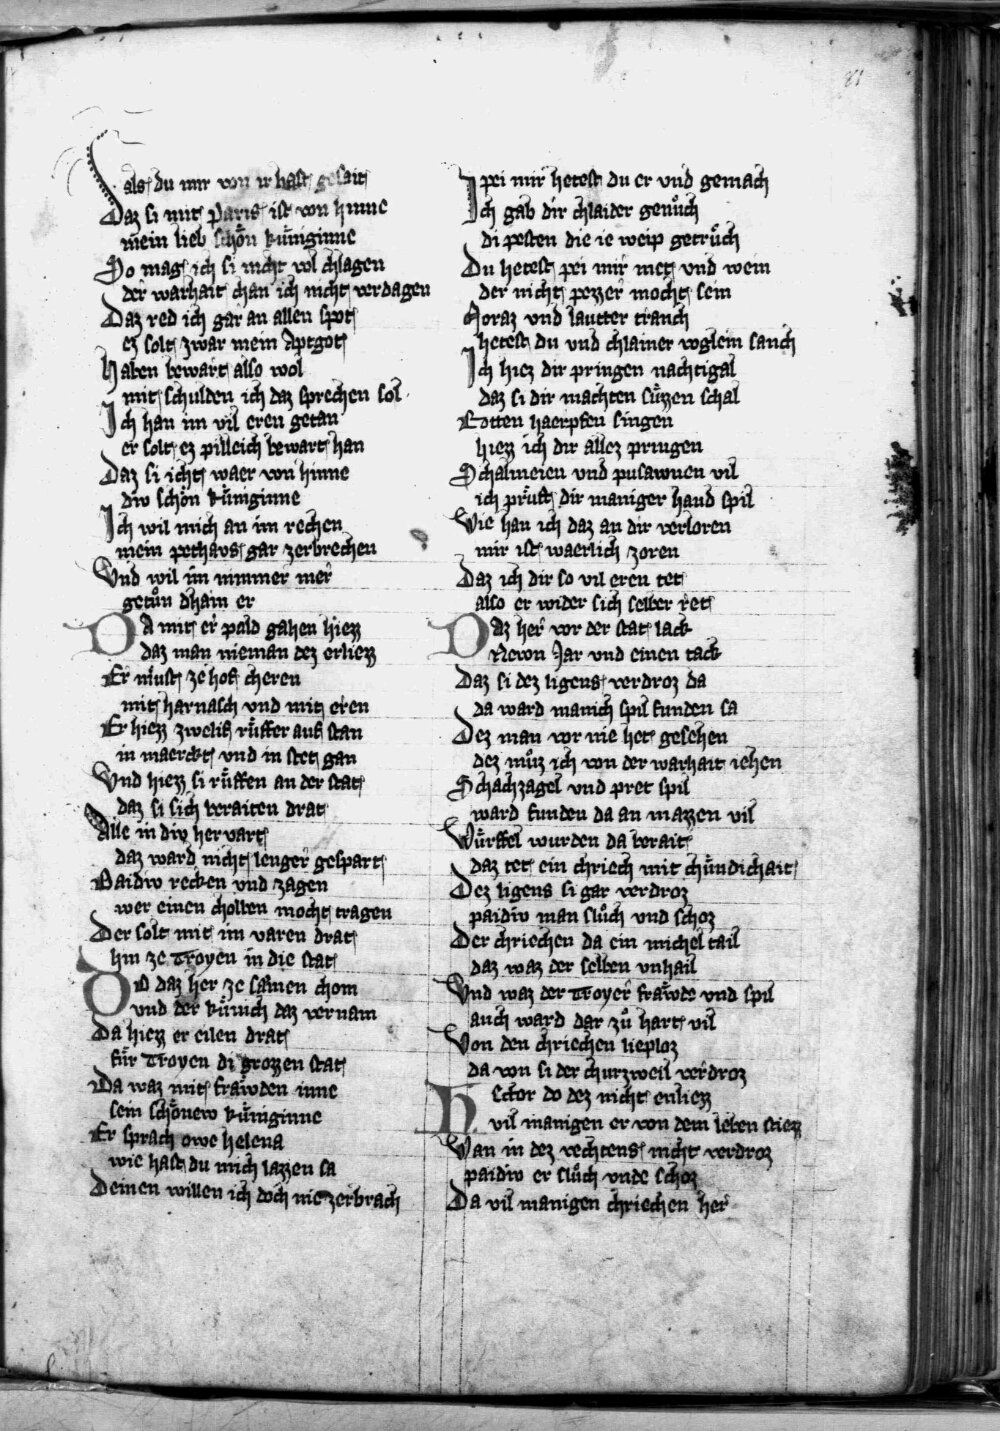 81
als du mir von ir hast gesait
Daz si mit Paris ist von hinne
mein lieb schön küniginne
So mag ich si nicht wol chlagen
der warhait chan ich nicht verdagen
Daz red ich gar an allen spot
ez solt zwar mein Aptgot
haben bewart also wol
mit schulden ich daz sprechen sol
Ich han im vil eren getan
er solt ez pilleich bewart han
Daz si icht waer von hinne
diw schön küniginne
Ich wil mich an im rechen
mein pethaus gar zerbrechen
Vnd wil im nimmer mer
getůn dhain er
DA mit er pald gahen hiezz
daz man nieman dez erliezz
Er můst ze hof cheren
mit harnasch vnd mit eren
Er hiezz zwelif rüffer auf stan
in maerckt vnd in stet gan
Vnd hiezz si rüffen an der stat
daz si sich beraiten drat
Alle in div hervart
daz ward nicht lenger gespart
Baidiw recken vnd zagen
wer einen cholben mocht tragen
Der solt mit im varen drat
hin ze Troyen in die stat
DO daz her ze samen chom
vnd der künich daz vernam
Da hiezz er eilen drat
für Troyen di grozzen stat
Da waz mit fräwden inne
sein schönew küniginne
Er sprach owe helena
wie hast du mich lazzen sa
Deinen willen ich doch nie zerbrach
pei mir hetest du er vnd gemach
Ich gab dir chlaider genůch
di pesten die ie weip getrůch
Du hetest pei mir met vnd wein
der nicht pezzer mocht sein
Moraz vnd lautter tranch
hetest du vnd chlainer voglein sanch
Ich hiez dir pringen nachtigal
daz si dir machten süzzen schal
Rotten haerpfen singen
hiezz ich dir allez pringen
Schalmeien vnd pusawnen vil
ich prüft dir maniger hand spil
Wie han ich daz an dir verloren
mir ist waerlich zoren
Daz ich dir so vil eren tet
also er wider sich selber ret
DAz her vor der stat lack
Newn Jar vnd einen tack
Daz si dez ligens verdroz da
da ward manich spil funden sa
Dez man vor nie het gesehen
dez můz ich von der warhait iehen
Schachzagel vnd pret spil
ward funden da an mazzen vil
Würffel wurden da berait
daz tet ein chriech mit chündichait
Dez ligens si gar verdroz
paidiw man slůch vnd schoz
Der chriechen da ein michel tail
daz waz der selben vnhail
Vnd waz der Troyer fräwde vnd spil
auch ward dar zů hart vil
Von den chriechen lieploz
da von si der churzweil verdroz
Hector do dez nicht enliezz
vil manigen er von dem leben stiezz
Wan in dez vechtens nicht verdroz
paidiw er slůch vnde schoz
Da vil manigen chriechen her